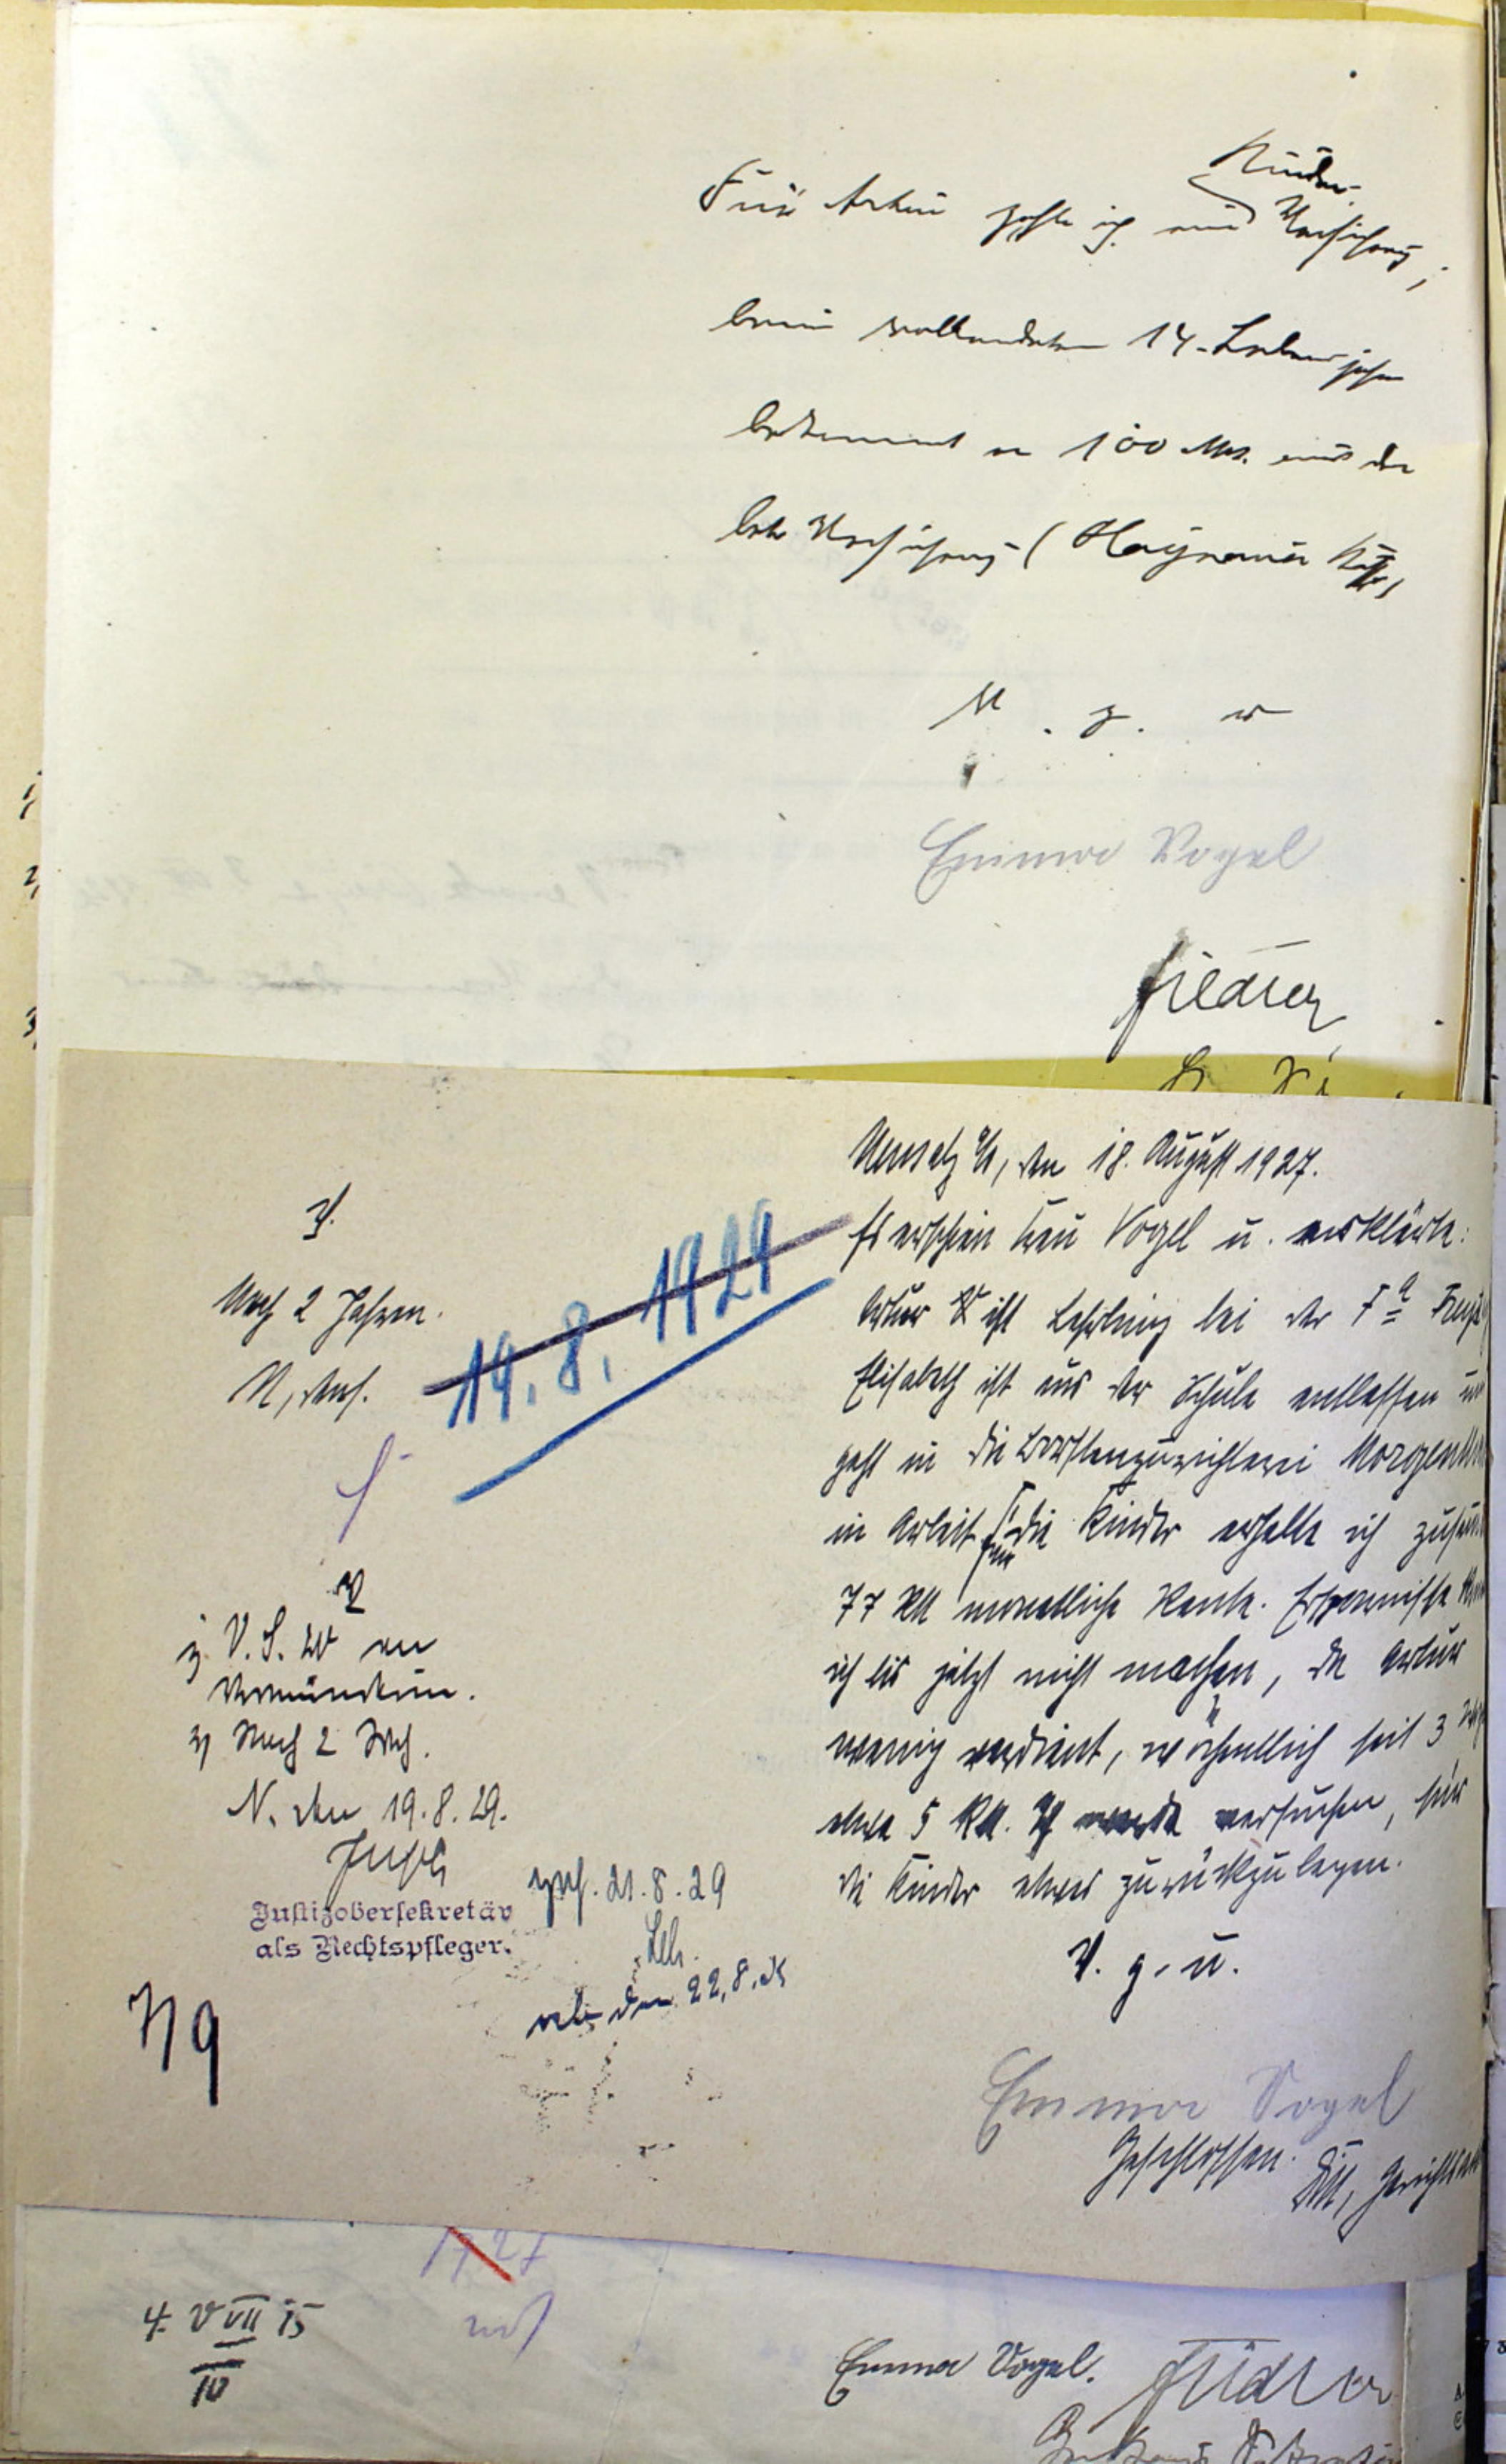 Für Artur zahle ich eine Kinder-
Versicherung,
beim vollendeten 14. Lebensjahr
bekommt er 100 Mk. aus der
Versicherung (Haynauer
V. g. u.
Emma Vogel
Fiedler
den 18. August 1927.
Es erschien Frau Vogel u. erklärte:
Artur V ist Lehrling bei der Fa
Elisabeth ist aus der Schule entlassen
geht in die Borstenzurichterei
in Arbeit. Für die Kinder erhalte ich
77 RM monatliche Rente. Ersparnisse
ich bis jetzt nicht machen, da Artur
wenig verdient, wöchentlich seit 3
etwa 5 RM. Ich werde versuchen, für
die Kinder etwas zurückzulegen.
V. g. u.
Emma Vogel
Geschlossen.
V.
Nach 2 Jahren.
N, 
19. 8. 1929
V
1) V. S. W an
Vormünderin.
2) Nach 2 Wch.
N. den 19.8.29.
Justizobersekretär
als Rechtspfleger.
gef. 21.8.29
ab den 22.8.
7/9
1927
4. V VII 15
IV
Emma Vogel. Fiedler